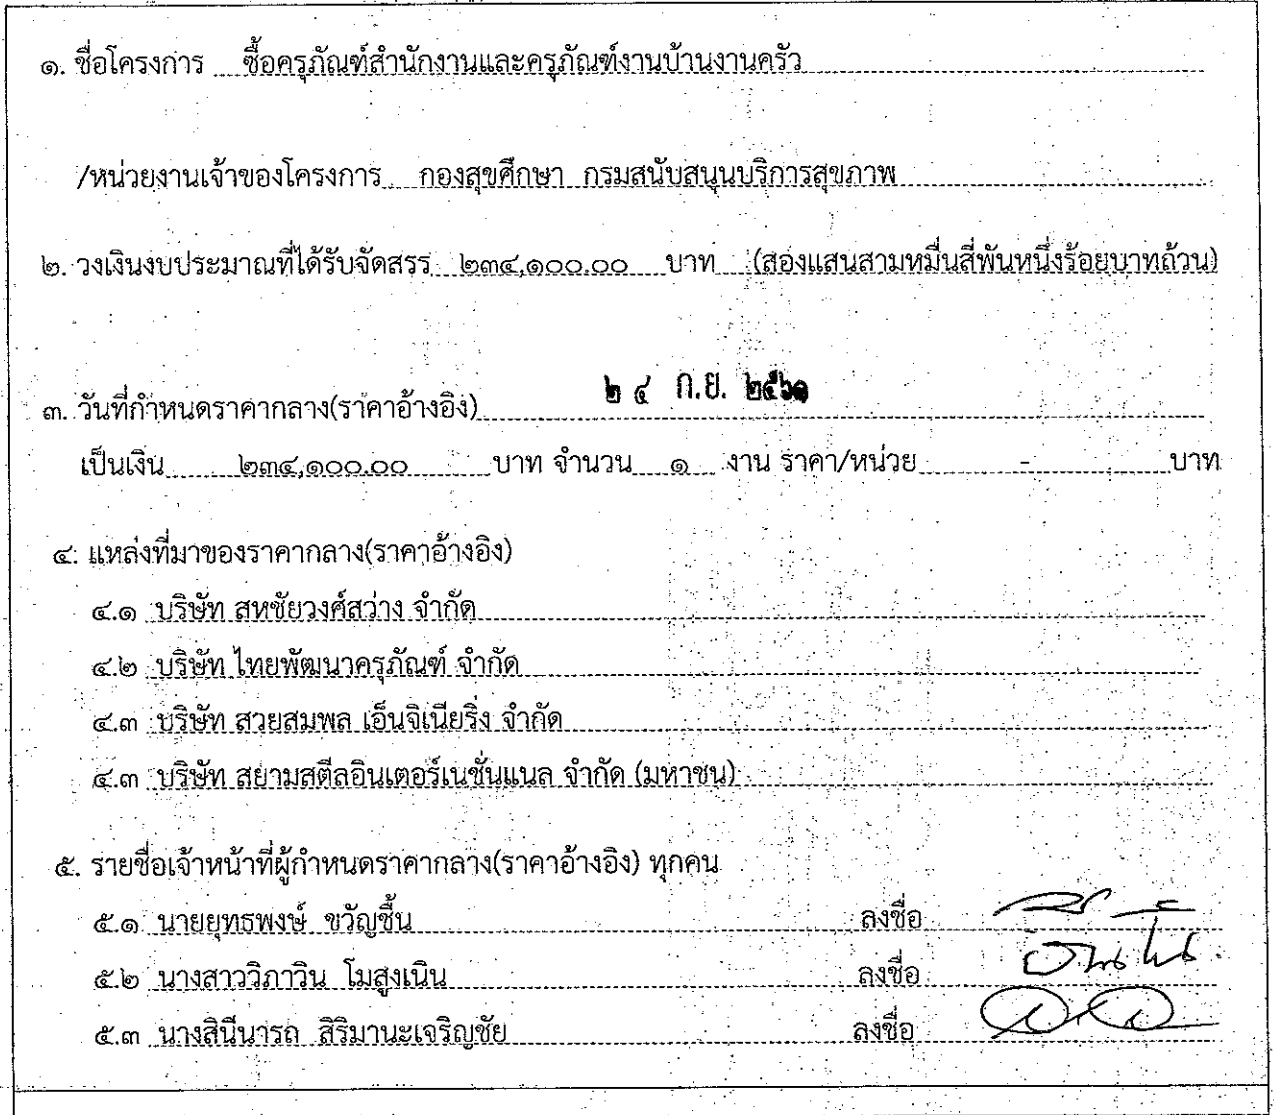 ๑. ชื่อโครงการ ซื้อครุภัณฑ์สำนักงานและครุภัณฑ์งานบ้านงานครัว
/หน่วยงานเจ้าของโครงการ กองสุขศึกษา กรมสนับสนุนบริการสุขภาพ
๒. วงเงินงบประมาณที่ได้รับจัดสรร ๒๓๔,๑๐๐.๐๐ บาท (สองแสนสามหมื่นสี่พันหนึ่งร้อยบาทถ้วน)
๓. วันที่กำหนดราคากลาง(ราคาอ้างอิง) ๒ ๔ ก.ย. ๒๕๖๑
เป็นเงิน ๒๓๔,๑๐๐.๐๐ บาท จำนวน ๑ งาน ราคา/หน่วย - บาท
๔. แหล่งที่มาของราคากลาง(ราคาอ้างอิง)
๔.๑ บริษัท สหชัยวงศ์สว่าง จำกัด
๔.๒ บริษัท ไทยพัฒนาครุภัณฑ์ จำกัด
๔.๓ บริษัท สวยสมพล เอ็นจิเนียริ่ง จำกัด
๔.๓ บริษัท สยามสตีลอินเตอร์เนชั่นแนล จำกัด (มหาชน)
๕. รายชื่อเจ้าหน้าที่ผู้กำหนดราคากลาง(ราคาอ้างอิง) ทุกคน
๕.๑ นายยุทธพงษ์ ขวัญชื้น ลงชื่อ
๕.๒ นางสาววิภาวิน โมสูงเนิน ลงชื่อ
๕.๓ นางสินีนารถ สิริมานะเจริญชัย ลงชื่อ